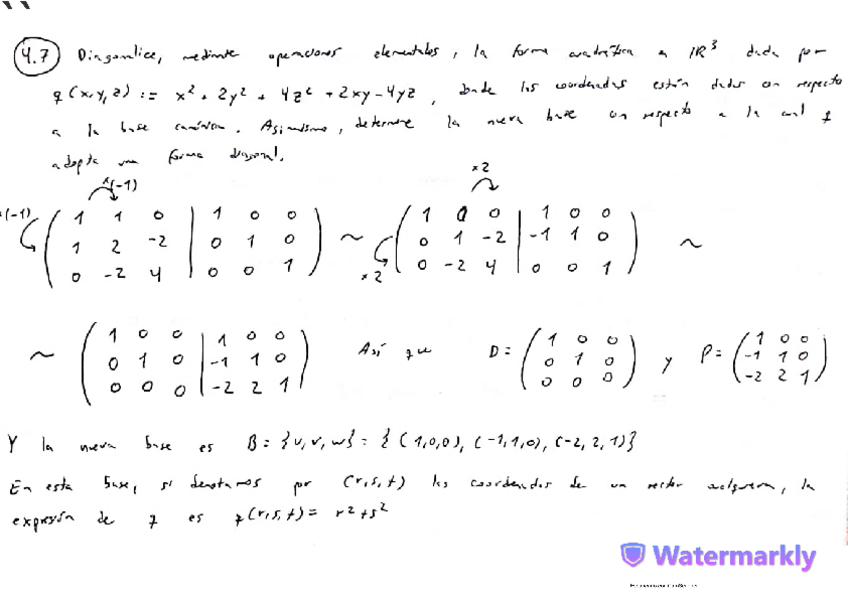 4.7 Diagonalice, mediante operaciones elementales, la forma cuadrática en IR³ dada por
q(x,y,z) := x² + 2y² + 4z² + 2xy - 4yz, donde las coordenadas están dadas con respecto
a la base canónica. Asimismo, determine la nueva base con respecto a la cual q
adopta una forma diagonal.
x(-1) x2
x(-1) ( 1 1 0 | 1 0 0 ) ~ ( 1 0 0 | 1 0 0 ) ~
( 1 2 -2 | 0 1 0 ) ( 0 1 -2 | -1 1 0 )
( 0 -2 4 | 0 0 1 ) x2 ( 0 -2 4 | 0 0 1 )
~ ( 1 0 0 | 1 0 0 ) Así que D = ( 1 0 0 ) y P = ( 1 0 0 )
( 0 1 0 | -1 1 0 ) ( 0 1 0 ) ( -1 1 0 )
( 0 0 0 | -2 2 1 ) ( 0 0 0 ) ( -2 2 1 )
Y la nueva base es B = {u, v, w} = { (1,0,0), (-1,1,0), (-2,2,1)}
En esta base, si denotamos por (r,s,t) las coordenadas de un vector cualquiera, la
expresión de q es q(r,s,t) = r²+s²
Watermarkly